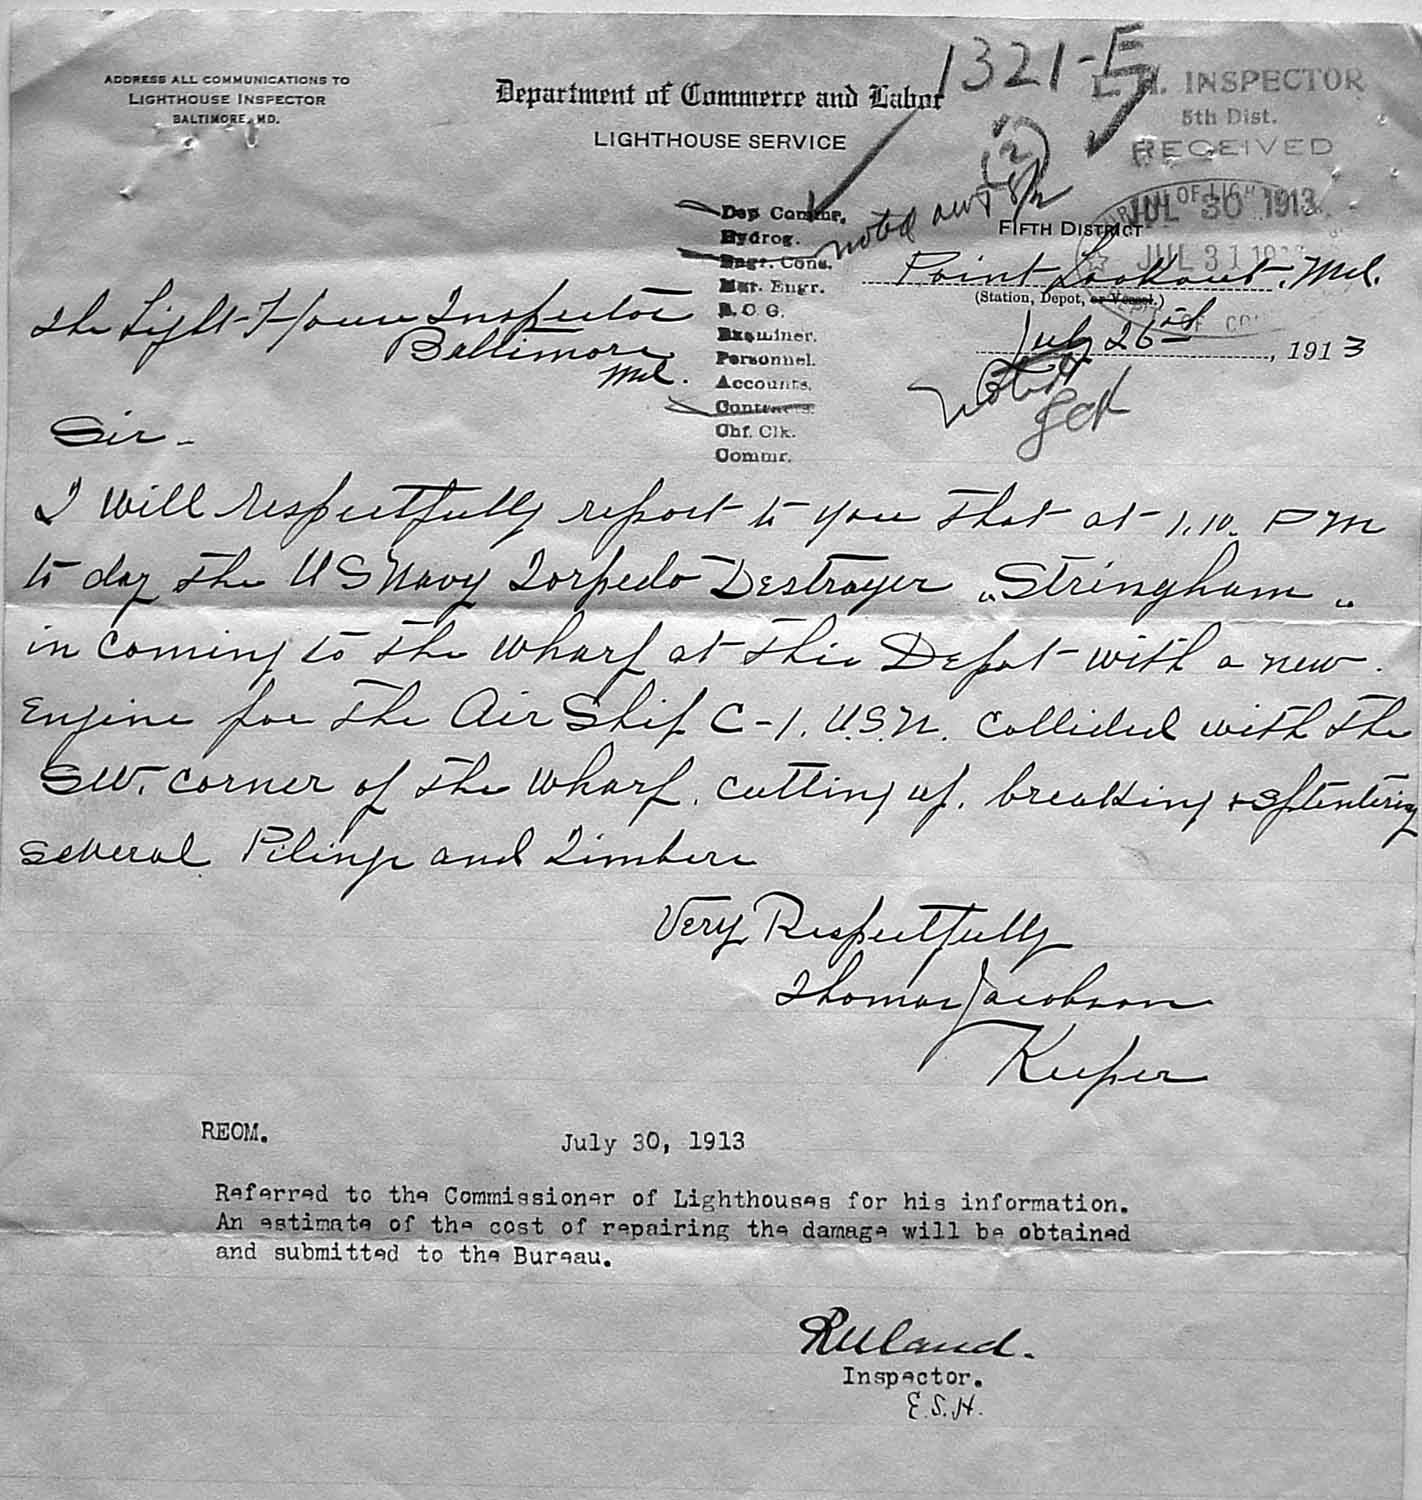 ADDRESS ALL COMMUNICATIONS TO
LIGHTHOUSE INSPECTOR
BALTIMORE, MD.
Department of Commerce and Labor
LIGHTHOUSE SERVICE
1321-E
L. H. INSPECTOR
5th Dist.
RECEIVED
JUL 30 1913
JUL 31
(2)
noted
Dep Commr.
Hydrog.
Engr. Cons.
Mar. Engr.
B. O G.
Examiner.
Personnel.
Accounts.
Contracts.
Chf. Clk.
Commr.
FIFTH DISTRICT
Point Lookout, Md.
(Station, Depot, or Vessel.)
July 26th, 1913
Noted
The Light-House Inspector
Baltimore
Md.
Sir -
I will respectfully report to you that at 1.10. PM
to day the US Navy Torpedo Destroyer "Stringham"
in coming to the wharf at this Depot with a new
Engine for the Air Ship C-1. U.S.N. collided with the
SW. corner of the wharf. cutting up, breaking & splentering
several Pilings and Timbers
Very Respectfully
Thomas Jacobson
Keeper
REOM.
July 30, 1913
Referred to the Commissioner of Lighthouses for his information.
An estimate of the cost of repairing the damage will be obtained
and submitted to the Bureau.
Inspector.
E.S.H.